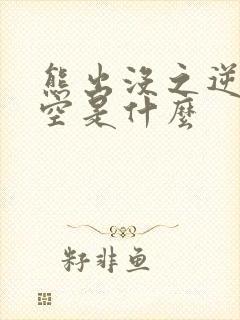 熊出没之逆
空是什麼
籽非鱼